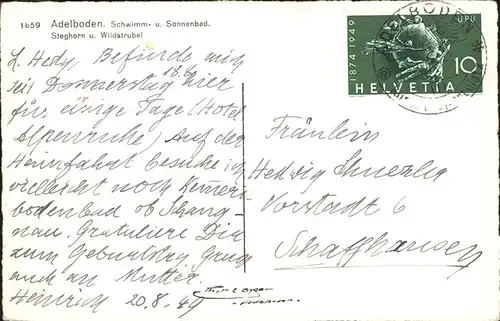 1859 Adelboden. Schwimm- u. Sonnenbad.
Steghorn u. Wildstrubel
L. Hedy Befinde mich
seit Donnerstag 18. hier
für einige Tage (Hotel
Alpenruhe) Auf der
Heimfahrt besuche ich
vielleicht noch Kemeri-
bodenbad ob Schang-
nau. Gratuliere Dir
zum Geburtstag, Gruss
auch an Mutter.
Heinrich 20.8.49
1874 1949
UPU
10
HELVETIA
ADELBODEN
Fräulein
Hedwig
Vorstadt 6
Schaffhausen